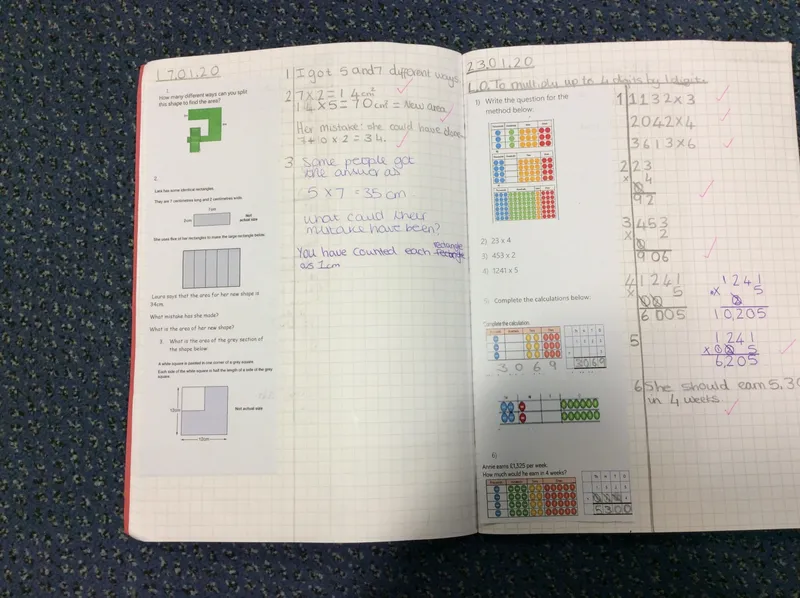 17.01.20
1.
How many different ways can you split
this shape to find the area?
2.
Lara has some identical rectangles.
They are 7 centimetres long and 2 centimetres wide.
7cm
2cm
Not
actual size
She uses five of her rectangles to make the large rectangle below.
Laura says that the area for her new shape is
34cm.
What mistake has she made?
What is the area of her new shape?
3. What is the area of the grey section of
the shape below
A white square is placed in one corner of a grey square.
Each side of the white square is half the length of a side of the grey
square.
12cm
Not actual size
1 I got 5 and 7 different ways
2 7×2=14cm²
14×5=70cm² = New area
Her mistake: she could have done
7+ 0 x 2 = 34.
3 Some people got
the answer as
5 × 7 = 35 cm
what could their
mistake have been?
You have counted each rectangle
as 1cm
23.01.20
L.O. To multiply up to 4 digits by 1 digit
1) Write the question for the
method below.
2) 23 x 4
3) 453 x 2
4) 1241 x 5
5) Complete the calculations below:
Complete the calculation.
3 0 6 9
3069
6)
Annie earns £1,325 per week.
How much would he earn in 4 weeks?
5300
1 1132×3
2042×4
3613×6
2 23
× 4
92
3 453
× 2
906
4 1241
× 5
6005
1241
×5
10,205
5
1241
× 5
6,205
6 She should earn 5,30
in 4 weeks